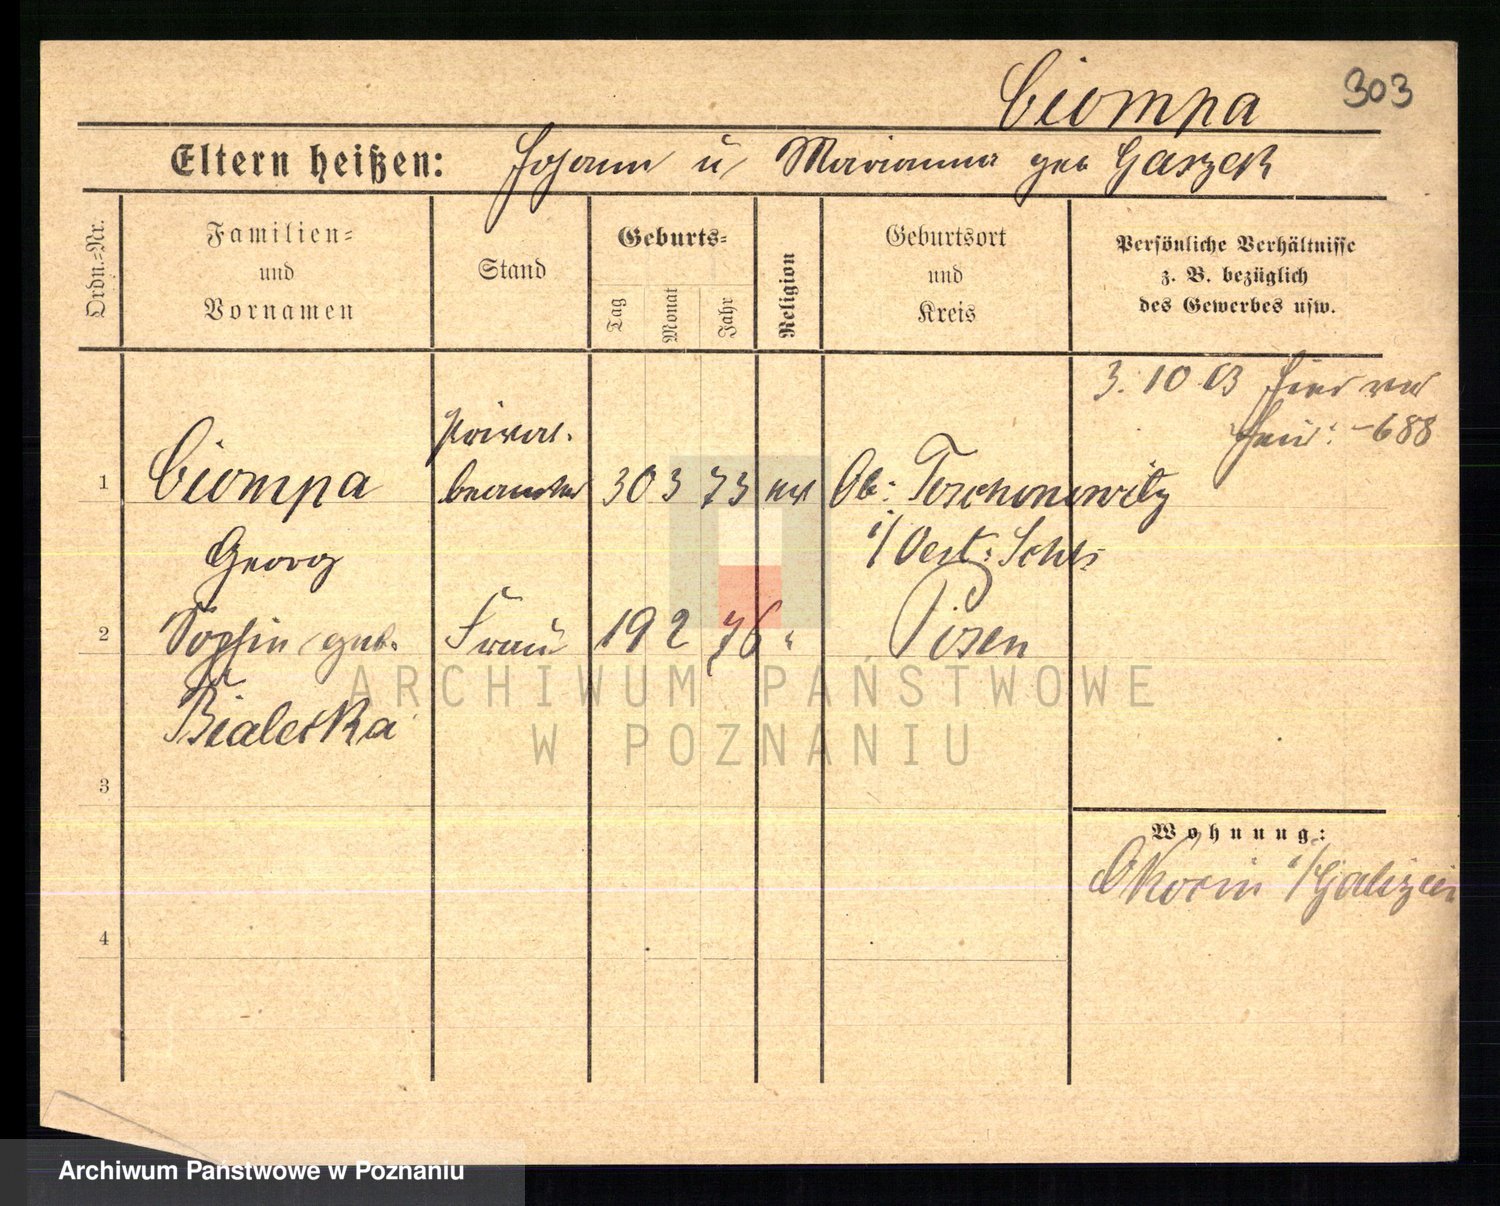 Ciompa 303
Eltern heißen: Johann u Marianna geb Gaszek
Ordn.=Nr.
Familien=
und
Vornamen
Stand
Geburts=
Tag
Monat
Jahr
Religion
Geburtsort
und
Kreis
Persönliche Verhältnisse
z. B. bezüglich
des Gewerbes usw.
3. 10 03
688
Privat.
1 Ciompa beamter 30 3 73 Ob:
Georg i/Oest: Schls
2 Sophie geb. Frau 19 2 76 " Posen
Bialecka
3
4
Wohnung:
i/Galizien
ARCHIWUM PAŃSTWOWE
W POZNANIU
Archiwum Państwowe w Poznaniu